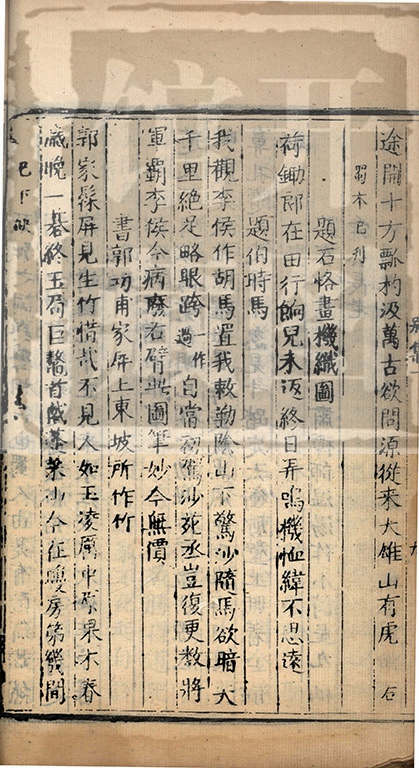 途開十方瓢杓汲萬古欲問源從來大雄山有虎
蜀本石刻
題石恪畫機織圖
荷鋤郎在田行餉兒未返終日弄鳴機恤緯不思遠
題伯時馬
我觀李侯作胡馬置我敕勒陰山下驚沙隨馬欲暗天
千里絕足略眼跨一作過自當初駕沙苑丞豈復更數將
軍霸李侯今病廢右臂此圖筆妙今無價
書郭功甫家屏上東坡所作竹
郭家髹屏見生竹惜哉不見人如玉凌厲中原草木春
歲晚一碁終玉局巨鼇首戴蓬萊山今在瓊房第幾間
已下缺